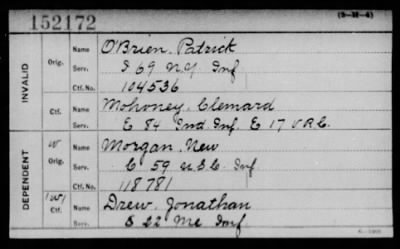 152172
(3-H-4)
INVALID
Orig.
Name O'Brien, Patrick
Serv. I 69 N.Y. Inf
Ctf. No. 104536
Ctf.
Name Mohoney, Clemard
Serv. E 84 Ind. Inf. E 17 V.R.C.
DEPENDENT
W
Orig.
Name Morgan, New
Serv. C 59 U.S.C. Inf
Ctf. No. 118781
"W"
Ctf.
Name Drew, Jonathan
Serv. 22 Me Inf